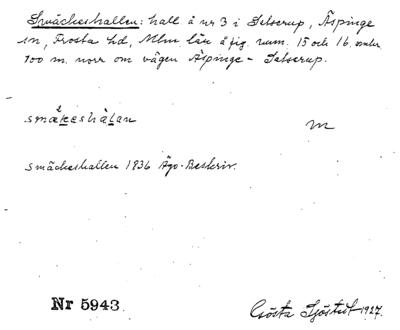 Smäckeshallen: hall å nr 3 i Setserup, Äspinge
sn, Frosta hd, Mlm. län å fig. rum. 15 och 16. omkr
100 m. norr om vägen Äspinge - Satserup.
smäkeshälan
m
smäckeshallen 1836 Ägo-Beskriv.
Nr 5943
Gösta Sjöstedt 1927.